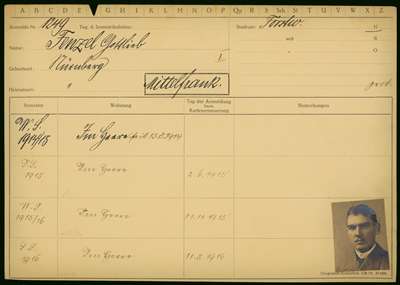 A B C D E F G H I J K L M N O P Q R S T U V W X Y Z
Anmelde-Nr.: 1049 Tag d. Immatrikulation: Studium: Forstw. H
Name: Fenzel Gottlieb seit R
O
Geburtsort: Nürnberg
Heimatsort: " Mittelfrank. gest.
Semester Wohnung Tag der Anmeldung bezw. Kartenerneuerung Bemerkungen
W.S. 1914/15 Im Heere 13.8.1914
S.S. 1915 Im Heere 2.6.1915
W.S. 1915/16 Im Heere 11.11.1915
S.S. 1916 Im Heere 11.5.1916